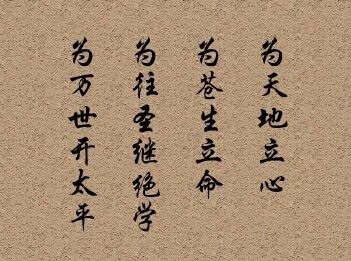 为天地立心
为苍生立命
为往圣继绝学
为万世开太平